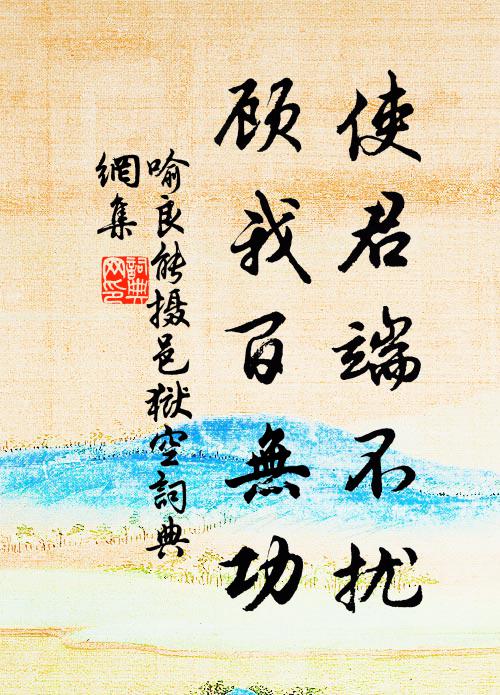 使君端不扰
顾我百無功
喻良能摄邑獄空詞典
網集
詞典網印